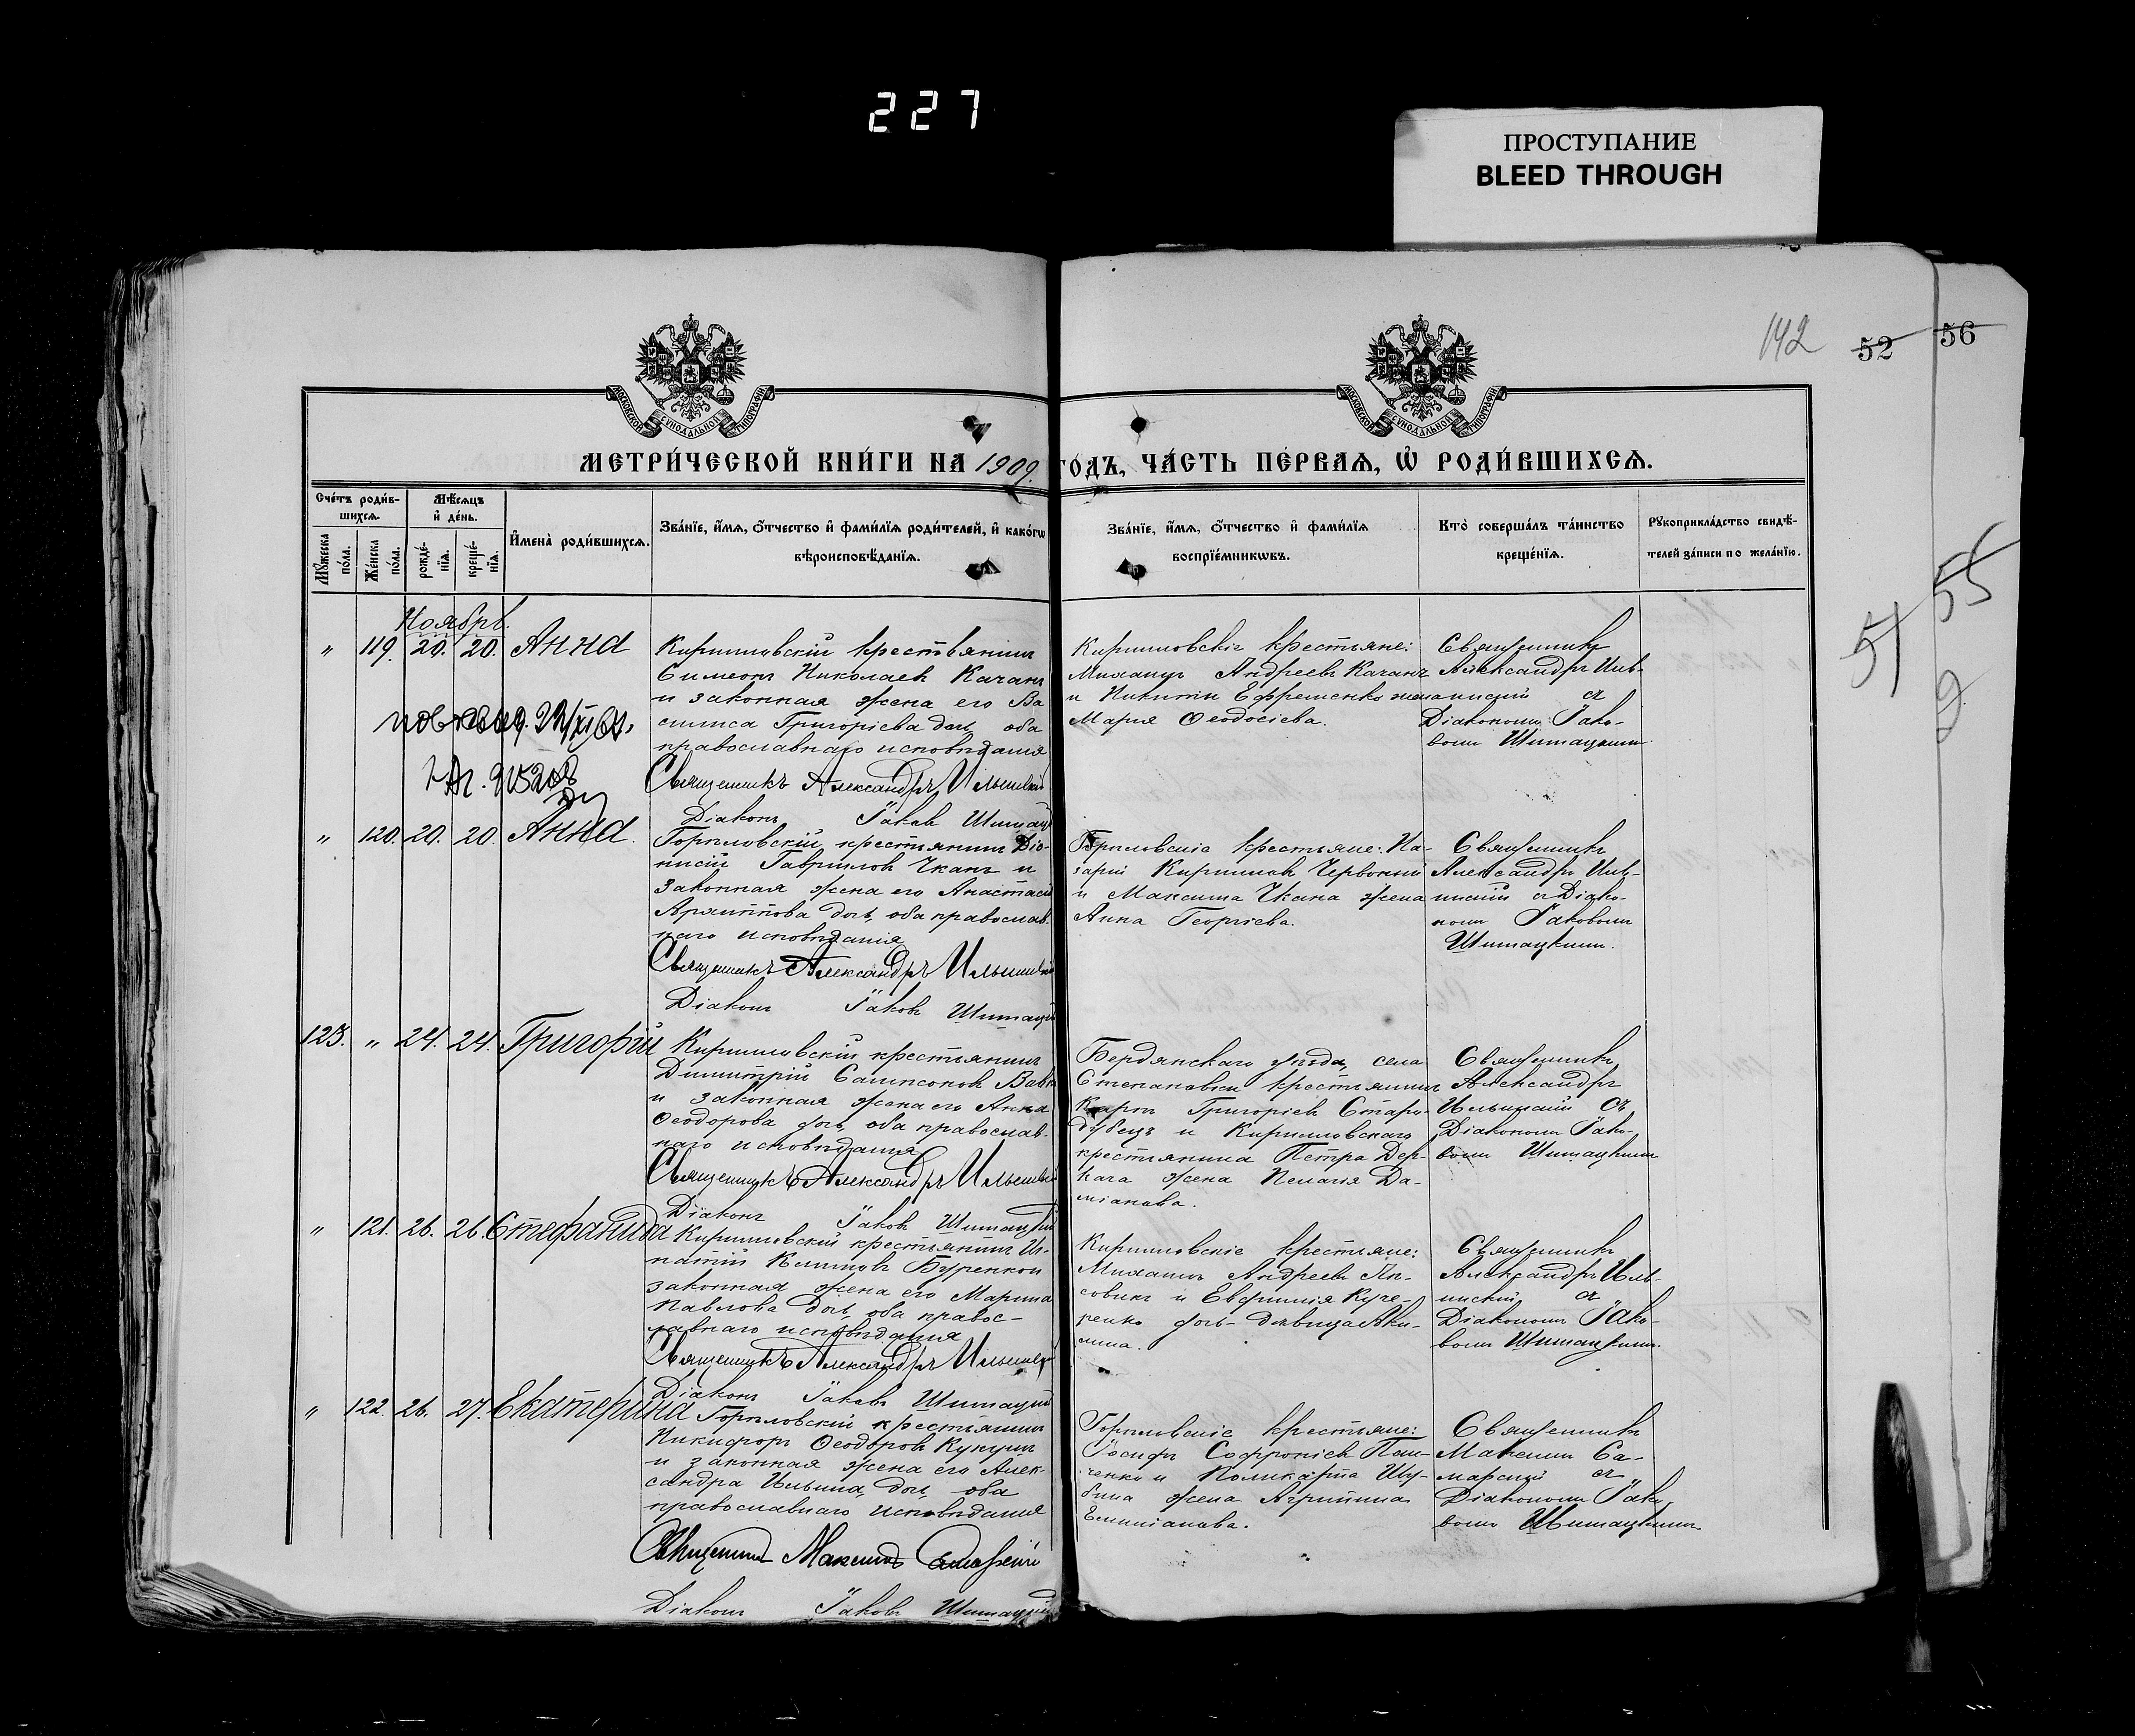 227
ПРОСТУПАНИЕ
BLEED THROUGH
142 52 56
МОСКОВСКОЙ СУНОДАЛЬНОЙ ТИПОГРАФІИ
МОСКОВСКОЙ СУНОДАЛЬНОЙ ТИПОГРАФІИ
МЕТРИ́ЧЕСКОЙ КНИ́ГИ НА 1909 ГО́ДЪ, ЧА́СТЬ ПЕ́РВАѦ, Ѡ РОДИ́ВШИХСѦ.
Сче́тъ роди́в-
шихсѧ.
Мꙋжеска по́ла.
Же́нска по́ла.
Мѣ́сѧцъ
и҆ де́нь.
рожде́-
нїѧ.
креще́-
нїѧ.
И҆мена̀ роди́вшихсѧ.
Зва́нїе, и҆́мѧ, ѻ҆́тчество и҆ фами́лїѧ роди́телей, и҆ како́гѡ
вѣроисповѣ́данїѧ.
Зва́нїе, и҆́мѧ, ѻ҆́тчество и҆ фами́лїѧ
воспрїе́мникѡвъ.
Кто̀ соверша́лъ та́инство
креще́нїѧ.
Рꙋкоприкла́дство свидѣ́-
телей за́писи по жела́нїю.
55
51
Ноябрь.
" 119. 20. 20. Анна
Кирилловскій крестьянинъ
Симеонъ Николаевъ Качанъ
и законная жена его Ва
силиса Григоріева дочь, оба
православнаго исповѣданія
Священникъ Александръ Ильинскій
Діаконъ Іаковъ Шимацк
Кирилловскіе крестьяне:
Михаилъ Андреевъ Качанъ
и Никиты Ефременко жена
Марія Ѳеодосіева.
Священникъ
Александръ Иль-
инскій съ
Діакономъ Іако-
вомъ Шимацкимъ
" 120. 20. 20. Анна.
Горѣловскій крестьянинъ Діо-
нисій Гавриловъ Чканъ и
законная жена его Анастасі
дочь, оба православ-
наго исповѣданія
Священникъ Александръ Ильинскій
Діаконъ Іаковъ Шимацк
Горѣловскіе крестьяне: На-
зарій Кирилловъ Червоный
и Максима Чкана жена
Анна Георгіева.
Священникъ
Александръ Иль-
инскій съ Діако-
номъ Іаковомъ
Шимацкимъ.
123. " 24. 24. Григорій
Кирилловскій крестьянинъ
Димитрій Сампсоновъ
и законная жена его Анна
Ѳеодорова дочь, оба православ-
наго исповѣданія
Священникъ Александръ Ильинскій
Діаконъ Іаковъ Шимацкій
Бердянскаго уѣзда, села
Степановки крестьянинъ
Карпъ Григоріевъ Старо-
дубецъ и Кирилловскаго
крестьянина Петра Дер-
кача жена Пелагія Да-
міанова.
Священникъ
Александръ
Ильинскій съ
Діакономъ Іако-
вомъ Шимацкимъ
" 121. 26. 26. Стефанида
Кирилловскій крестьянинъ Иг-
натій Климовъ Буренко и
законная жена его Марина
Павлова дочь, оба правос-
лавнаго исповѣданія
Священникъ Александръ Ильинскій
Діаконъ Іаковъ Шимацкій
Кирилловскіе крестьяне:
Михаилъ Андреевъ Ли-
совикъ и Евфимія Куче-
ренко дочь-дѣвица Аки-
лина.
Священникъ
Александръ Иль-
инскій съ
Діакономъ Іако-
вомъ Шимацкимъ.
" 122. 26. 27. Екатерина
Горѣловскій крестьянинъ
Никифоръ Ѳеодоровъ Кукуринъ
и законная жена его Алек-
сандра Ильина дочь, оба
православнаго исповѣданія
Священникъ Максимъ Самарскій
Діаконъ Іаковъ Шимацкій
Горѣловскіе крестьяне:
Іосифъ Софроніевъ Пан-
ченко и Поликарпа Шу-
бина жена Агрипина
Емиліанова.
Священникъ
Максимъ Са-
марскій съ
Діакономъ Іако-
вомъ Шимацкимъ